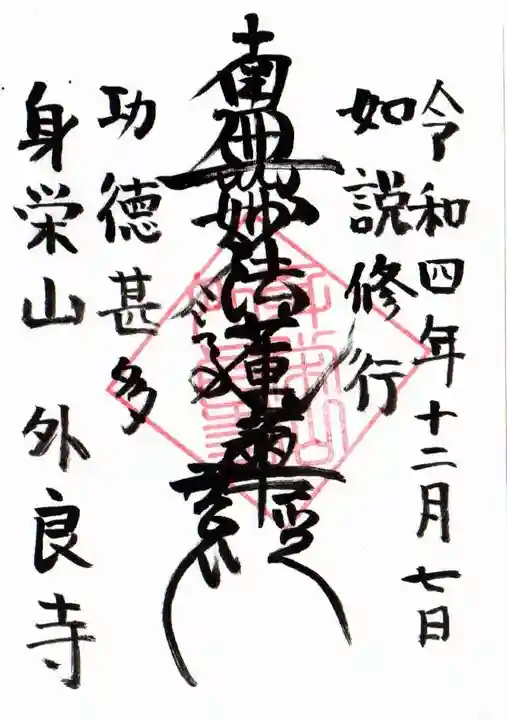 令和四年十二月七日
如説修行
南無妙法蓮華経
功徳甚多
身栄山 外良寺